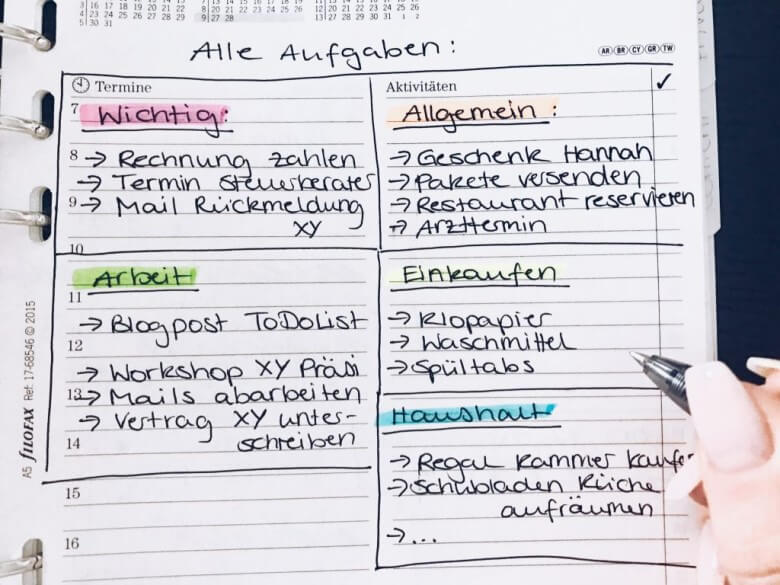 3 16 17 18 19 20 21 22
4 23 24 25 26 27 28 29
5 30 31
9 27 28
Alle Aufgaben:
AR BR CY GR TW
Termine
Aktivitäten ✓
7
Wichtig:
8 → Rechnung zahlen
→ Termin Steuerberater
9 → Mail Rückmeldung
XY
10
Allgemein:
→ Geschenk Hannah
→ Pakete versenden
→ Restaurant reservieren
→ Arzttermin
Arbeit
11
→ Blogpost ToDoList
12
→ Workshop XY Präsi
13 → Mails abarbeiten
→ Vertrag XY unter-
14 schreiben
Einkaufen
→ Klopapier
→ Waschmittel
→ Spültabs
Haushalt
→ Regal Kammer kaufen
→ Schubladen Küche
aufräumen
→ ...
15
16
A5 FILOFAX Ref: 17-68546 © 2015